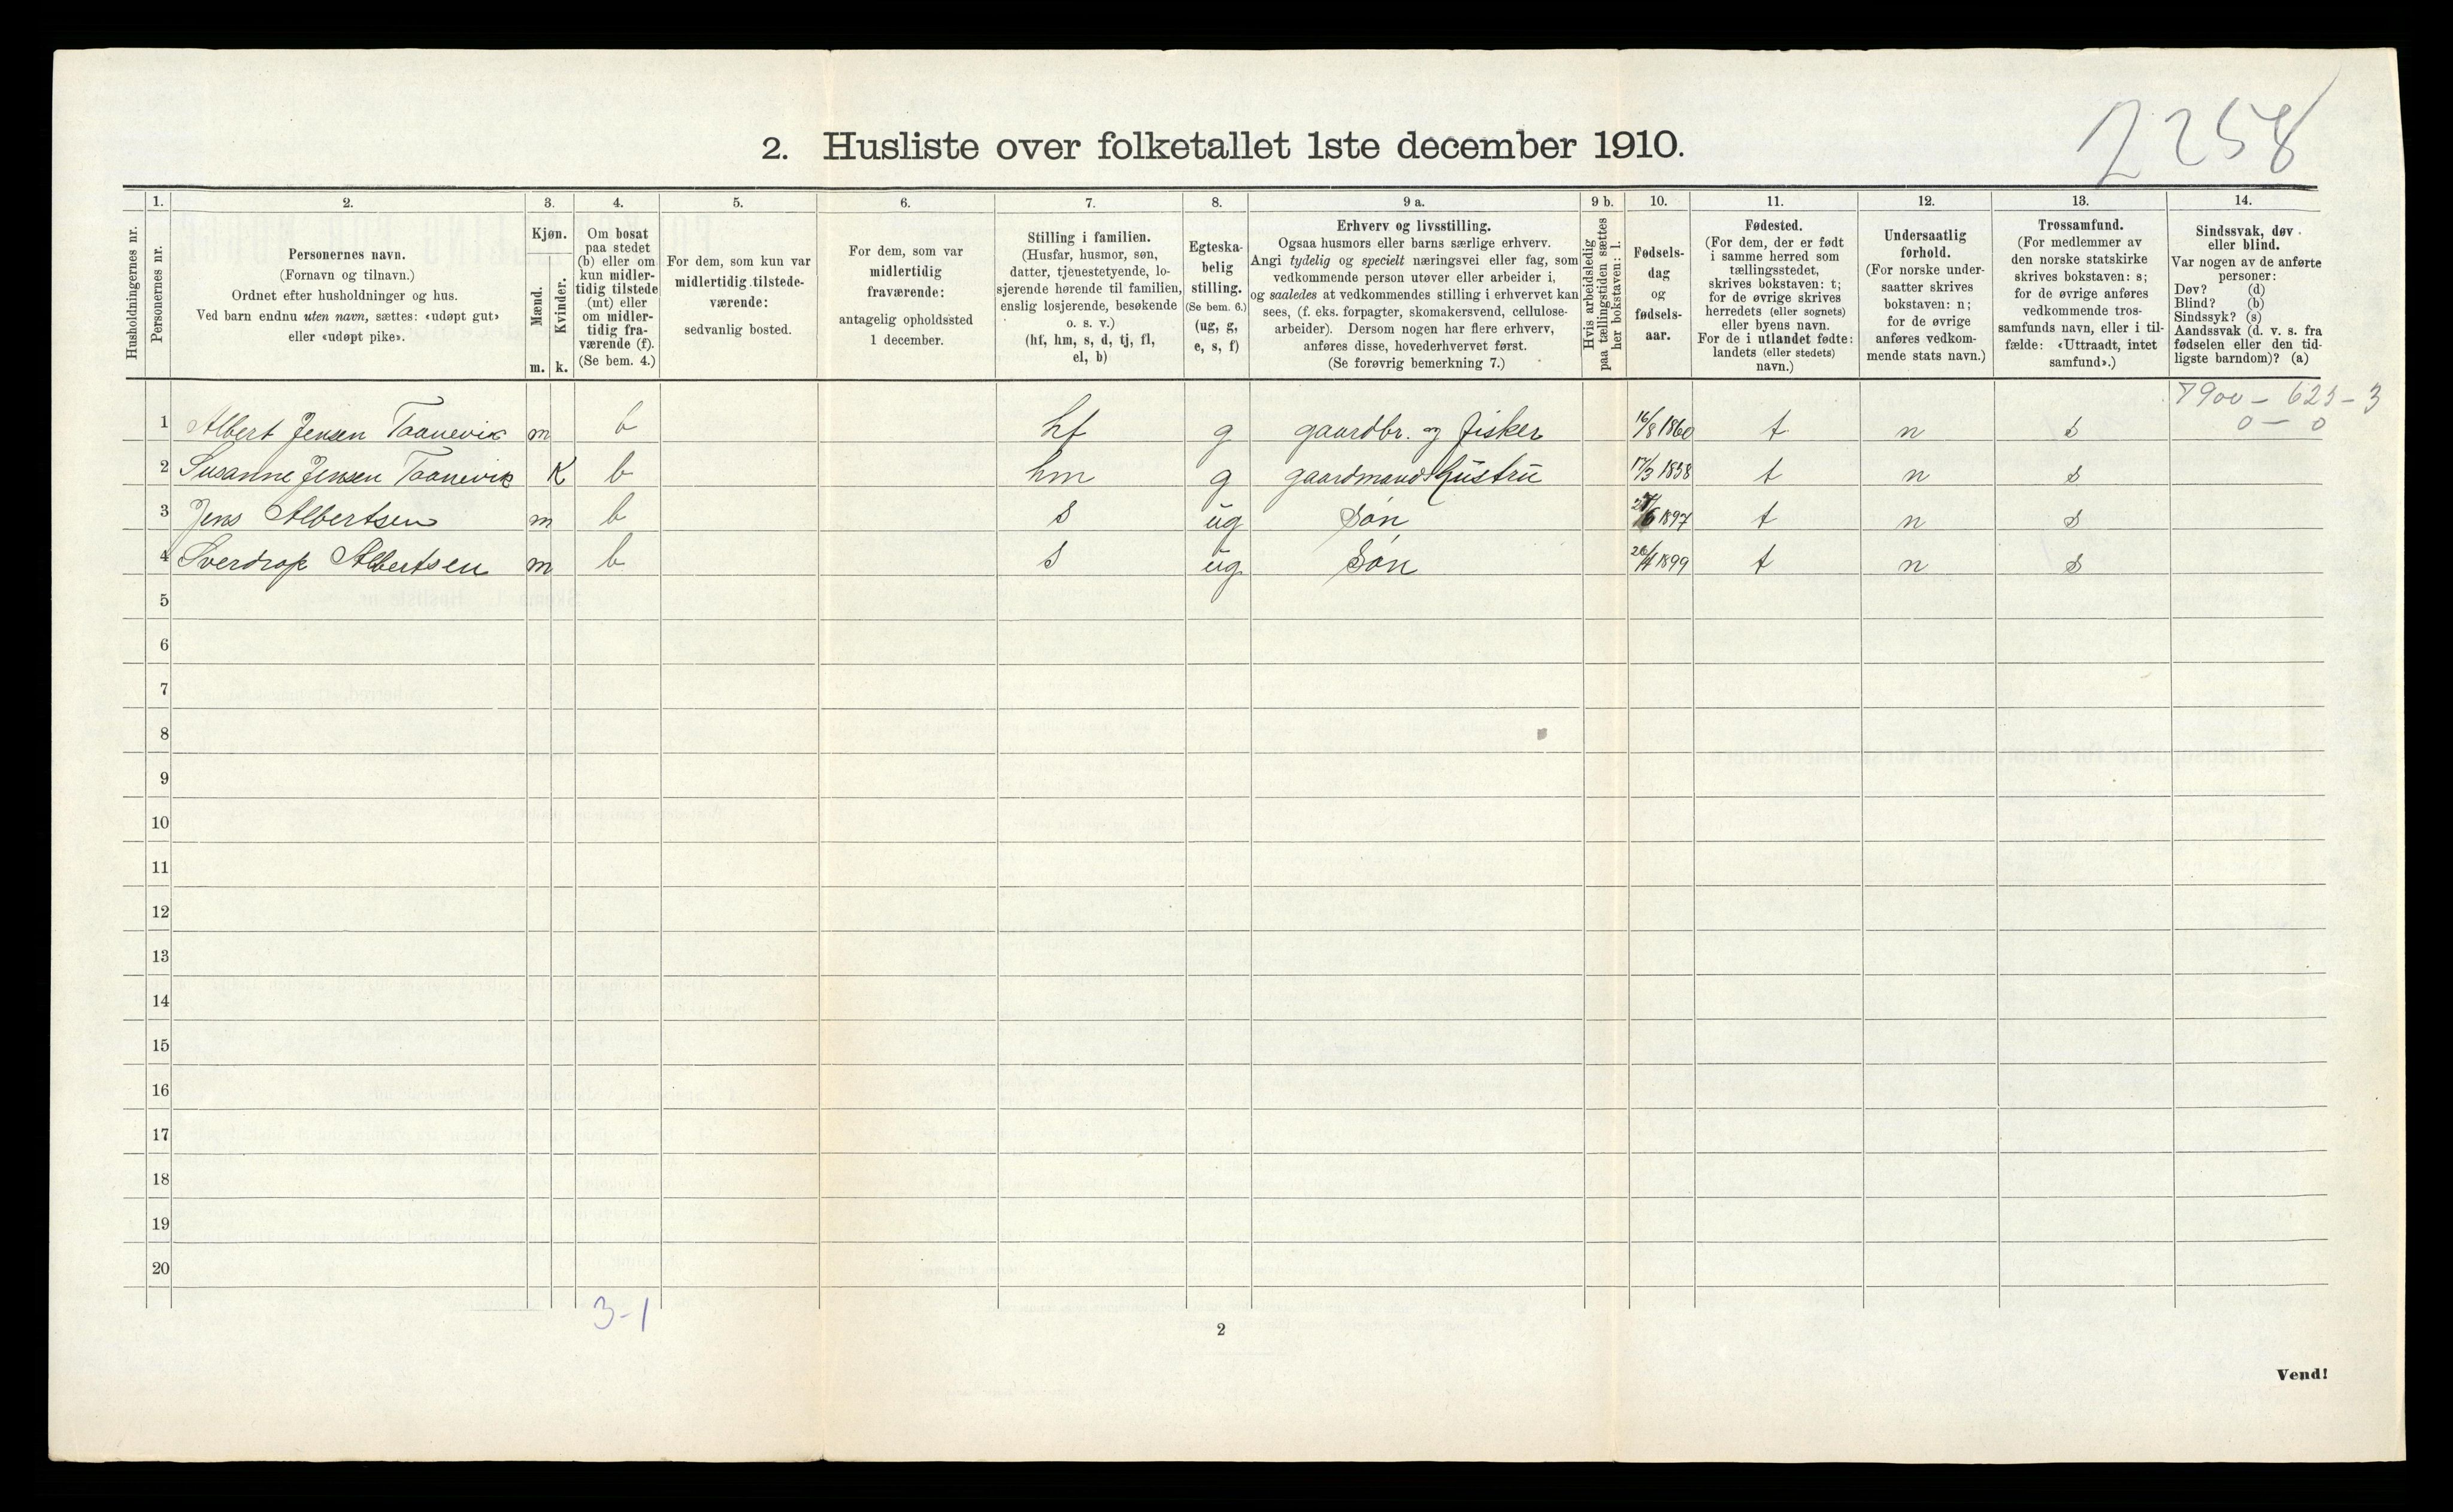 2258
2. Husliste over folketallet 1ste december 1910.
1. 2. 3. 4. 5. 6. 7. 8. 9 a. 9 b. 10. 11. 12. 13. 14.
Husholdningernes nr.
Personernes nr.
Personernes navn.
(Fornavn og tilnavn.)
Ordnet efter husholdninger og hus.
Ved barn endnu uten navn, sættes: «udøpt gut»
eller «udøpt pike».
Kjøn.
Mænd.
Kvinder.
m. k.
Om bosat
paa stedet
(b) eller om
kun midler-
tidig tilstede
(mt) eller
om midler-
tidig fra-
værende (f).
(Se bem. 4.)
For dem, som kun var
midlertidig tilstede-
værende:
sedvanlig bosted.
For dem, som var
midlertidig
fraværende:
antagelig opholdssted
1 december.
Stilling i familien.
(Husfar, husmor, søn,
datter, tjenestetyende, lo-
sjerende hørende til familien,
enslig losjerende, besøkende
o. s. v.)
(hf, hm, s, d, tj, fl,
el, b)
Egteska-
belig
stilling.
(Se bem. 6.)
(ug, g,
e, s, f)
Erhverv og livsstilling.
Ogsaa husmors eller barns særlige erhverv.
Angi tydelig og specielt næringsvei eller fag, som
vedkommende person utøver eller arbeider i,
og saaledes at vedkommendes stilling i erhvervet kan
sees, (f. eks. forpagter, skomakersvend, cellulose-
arbeider). Dersom nogen har flere erhverv,
anføres disse, hovederhvervet først.
(Se forøvrig bemerkning 7.)
Hvis arbeidsledig
paa tællingstiden sættes
her bokstaven: l.
Fødsels-
dag
og
fødsels-
aar.
Fødested.
(For dem, der er født
i samme herred som
tællingsstedet,
skrives bokstaven: t;
for de øvrige skrives
herredets (eller sognets)
eller byens navn.
For de i utlandet fødte:
landets (eller stedets)
navn.)
Undersaatlig
forhold.
(For norske under-
saatter skrives
bokstaven: n;
for de øvrige
anføres vedkom-
mende stats navn.)
Trossamfund.
(For medlemmer av
den norske statskirke
skrives bokstaven: s;
for de øvrige anføres
vedkommende tros-
samfunds navn, eller i til-
fælde: «Uttraadt, intet
samfund».)
Sindssvak, døv
eller blind.
Var nogen av de anførte
personer:
Døv? (d)
Blind? (b)
Sindssyk? (s)
Aandssvak (d. v. s. fra
fødselen eller den tid-
ligste barndom)? (a)
7900 – 625 – 3
0 – 0
1 Albert Jensen Taanevik m b hf g gaardbr. og fisker 16/8 1860 t n s
2 Susanne Jensen Taanevik K b hm g gaardmandshustru 17/3 1858 t n s
3 Jens Albertsen m b s ug Søn 1897 t n s
4 Sverdrop Albertsen m b s ug Søn 1899 t n s
5
6
7
8
9
10
11
12
13
14
15
16
17
18
19
20
3-1
2
Vend!